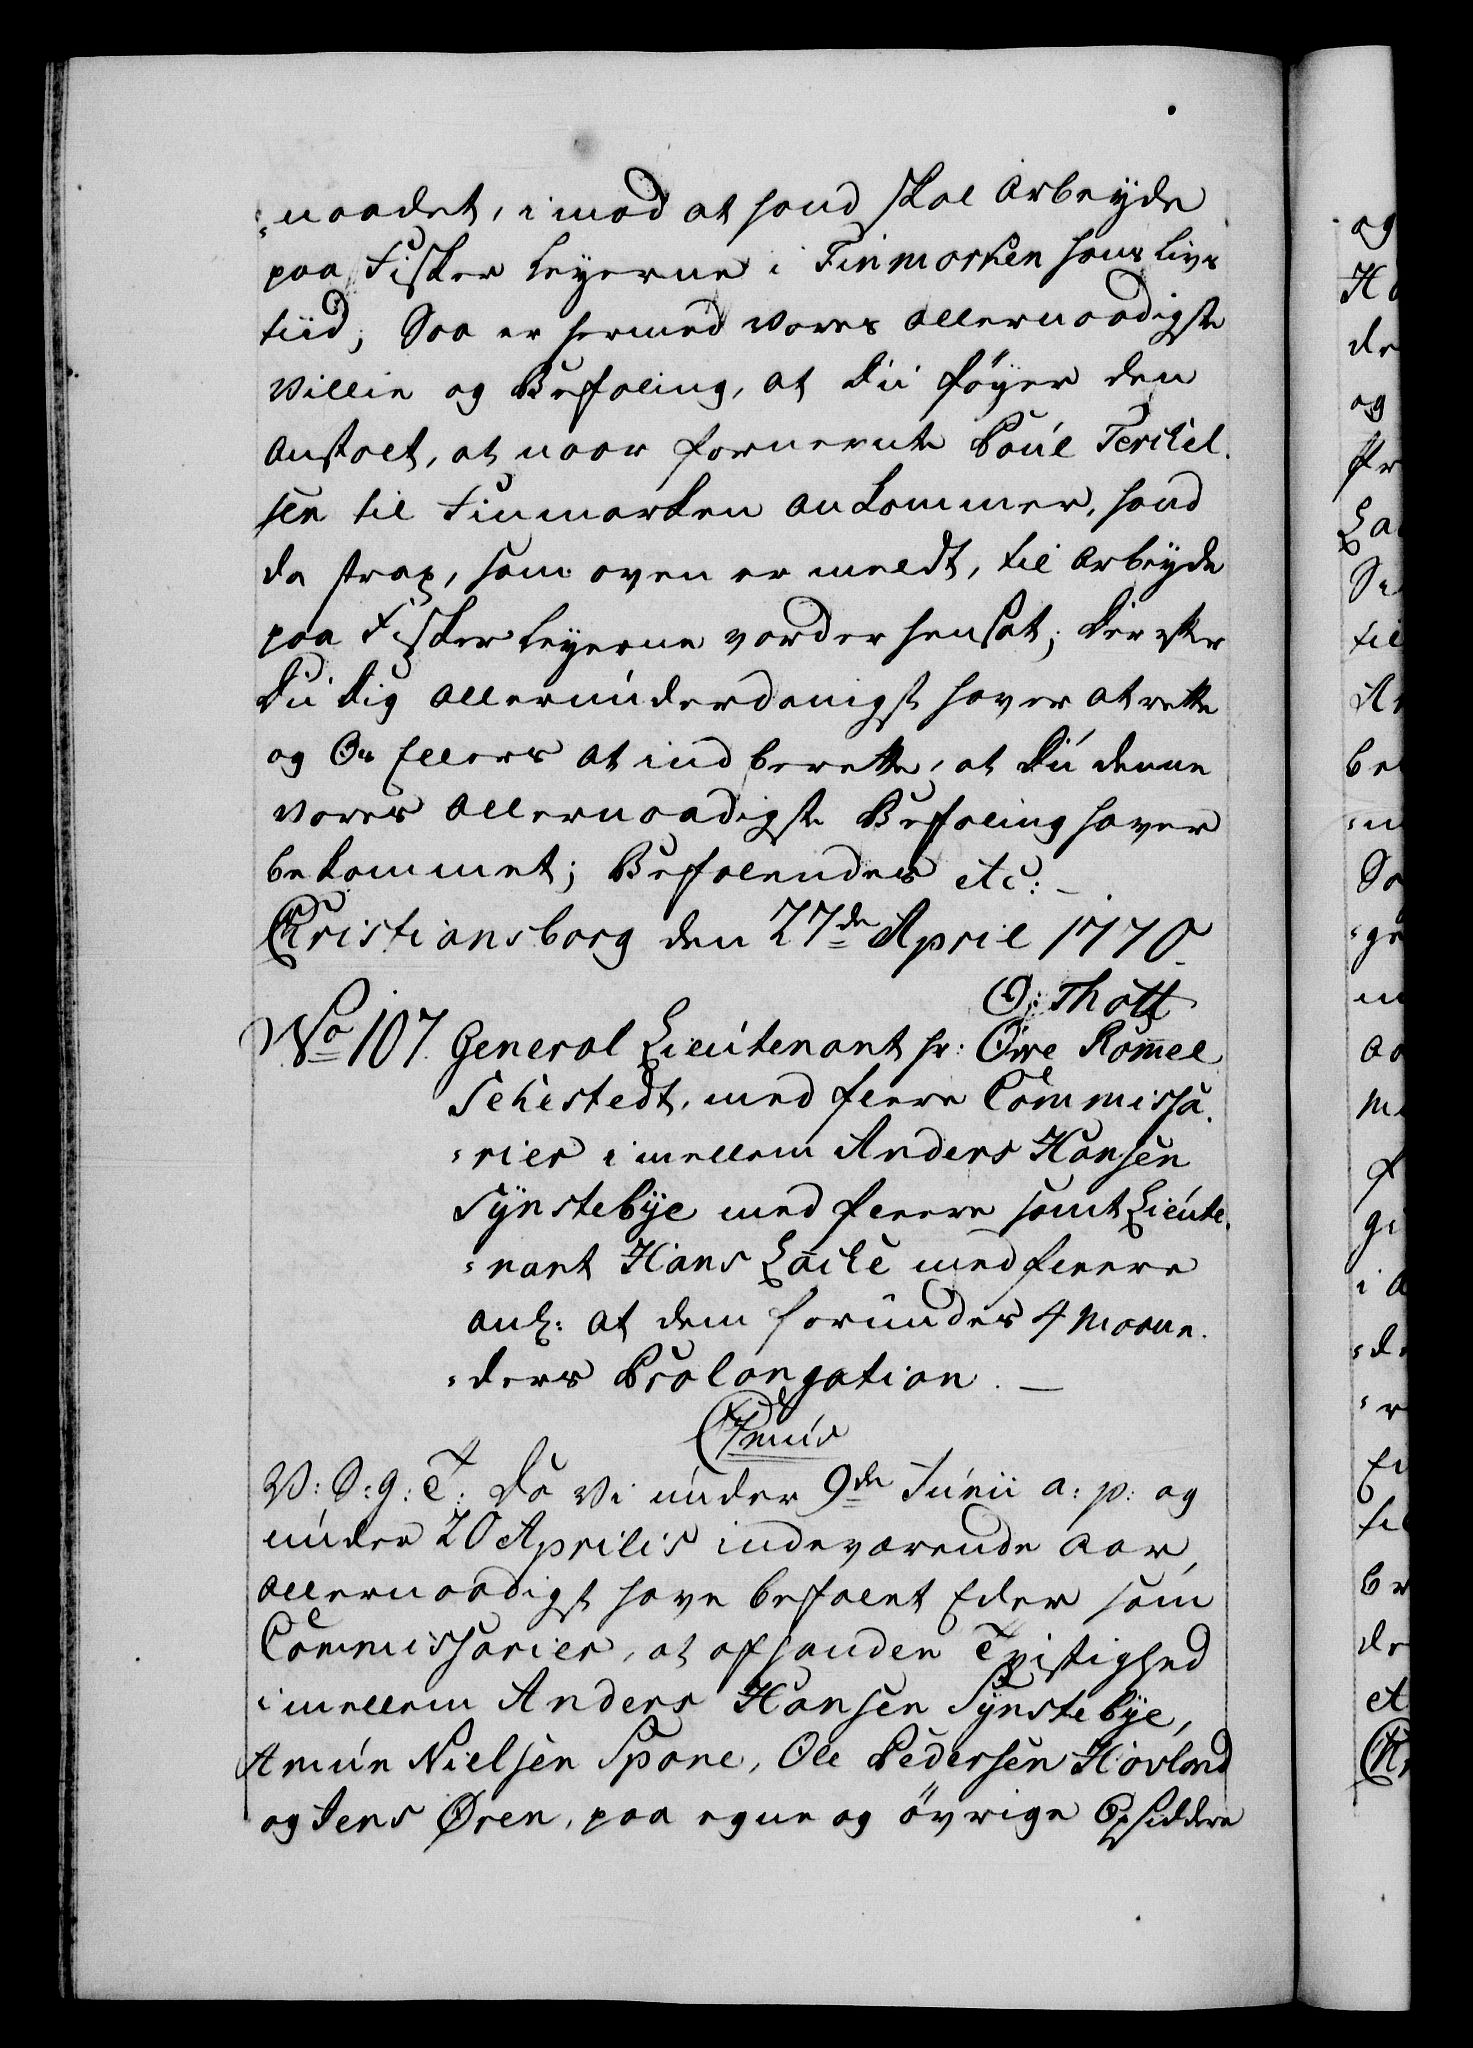 -naadet, imod at hand skal arbeyde
paa Fisker Leyerne i Finmarken hans Livs
tiid; Saa er hermed Vores allernaadigste
Villie og Befaling, at Du føyer den
anstalt, at naar fornevnte Poul Terkel-
sen til Finmarken ankommer, hand
da strax, som oven er meldt, til arbeyde
paa Fisker Leyerne vorder hensat; Der efter
Du dig allerunderdanigst haver at rette
og Os Ellers at indberette, at Du denne
Vores allernaadigste Befaling haver
bekommet; Befalendes etc:
Christiansborg den 27de April 1770.
O: Thott
No 107. General Lieutenant hr: Owe Rømel
Sehestedt, med fleere Commissa-
-rier imellem Anders Hansen
Synstebye med fleere samt Lieute-
-nant Hans Lache med fleere
anl: at dem forundes 4 Maane-
-ders Prolongation. —
V: S: g: T: Da Vi under 9de Junii a: p: og
under 20 Aprilis indeværende Aar,
allernaadigst have befalet Eder som
Commissarier, at afhandle Tvistighed
imellem Anders Hansen Synstebye,
Amun Nielsen Spone, Ole Pedersen Hovland
og Jens Øren, paa egne og øvrige Opsiddere